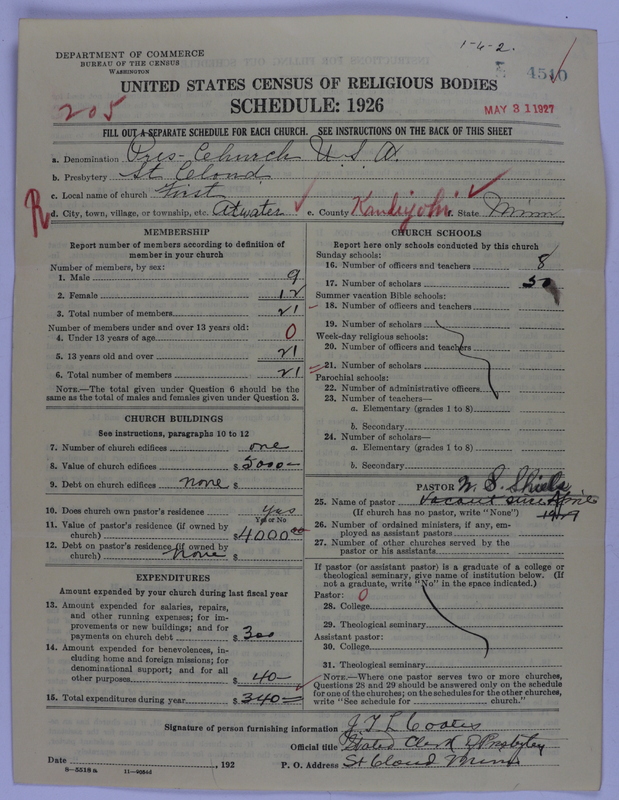 1-4-2.
DEPARTMENT OF COMMERCE
BUREAU OF THE CENSUS
WASHINGTON
4510
UNITED STATES CENSUS OF RELIGIOUS BODIES
SCHEDULE: 1926
205
MAY 31 1927
FILL OUT A SEPARATE SCHEDULE FOR EACH CHURCH. SEE INSTRUCTIONS ON THE BACK OF THIS SHEET
a. Denomination Pres- Church U.S.A.
b. Presbytery St Cloud
c. Local name of church First
R
d. City, town, village, or township, etc. Atwater e. County Kandiyohi f. State Minn
MEMBERSHIP
Report number of members according to definition of
member in your church
Number of members, by sex:
1. Male 9
2. Female 12
3. Total number of members 21
Number of members under and over 13 years old:
4. Under 13 years of age 0
5. 13 years old and over 21
6. Total number of members 21
NOTE.—The total given under Question 6 should be the
same as the total of males and females given under Question 3.
CHURCH BUILDINGS
See instructions, paragraphs 10 to 12
7. Number of church edifices one
8. Value of church edifices $5000-
9. Debt on church edifices none $
10. Does church own pastor's residence yes
Yes or No
11. Value of pastor's residence (if owned by
church) $4000.00
12. Debt on pastor's residence (if owned by
church) none $
EXPENDITURES
Amount expended by your church during last fiscal year
13. Amount expended for salaries, repairs,
and other running expenses; for im-
provements or new buildings; and for
payments on church debt $300
14. Amount expended for benevolences, in-
cluding home and foreign missions; for
denominational support; and for all
other purposes $40-
15. Total expenditures during year $340=
CHURCH SCHOOLS
Report here only schools conducted by this church
Sunday schools:
16. Number of officers and teachers 8
17. Number of scholars 50
Summer vacation Bible schools:
18. Number of officers and teachers
19. Number of scholars
Week-day religious schools:
20. Number of officers and teachers
21. Number of scholars
Parochial schools:
22. Number of administrative officers
23. Number of teachers—
a. Elementary (grades 1 to 8)
b. Secondary
24. Number of scholars—
a. Elementary (grades 1 to 8)
b. Secondary
PASTOR W. S. Shiels
25. Name of pastor Vacant since April
(If church has no pastor, write "None")
26. Number of ordained ministers, if any, em-
ployed as assistant pastors
27. Number of other churches served by the
pastor or his assistants
If pastor (or assistant pastor) is a graduate of a college or
theological seminary, give name of institution below. (If
not a graduate, write "No" in the space indicated.)
Pastor: 0
28. College
29. Theological seminary
Assistant pastor:
30. College
31. Theological seminary
NOTE.—Where one pastor serves two or more churches,
Questions 28 and 29 should be answered only on the schedule
for one of the churches; on the schedules for the other churches,
write "See schedule for church."
Signature of person furnishing information J. T. L. Coates
Official title Stated Clerk Presbytery
Date , 192 P. O. Address St Cloud Minn
8-5518a 11-9054d